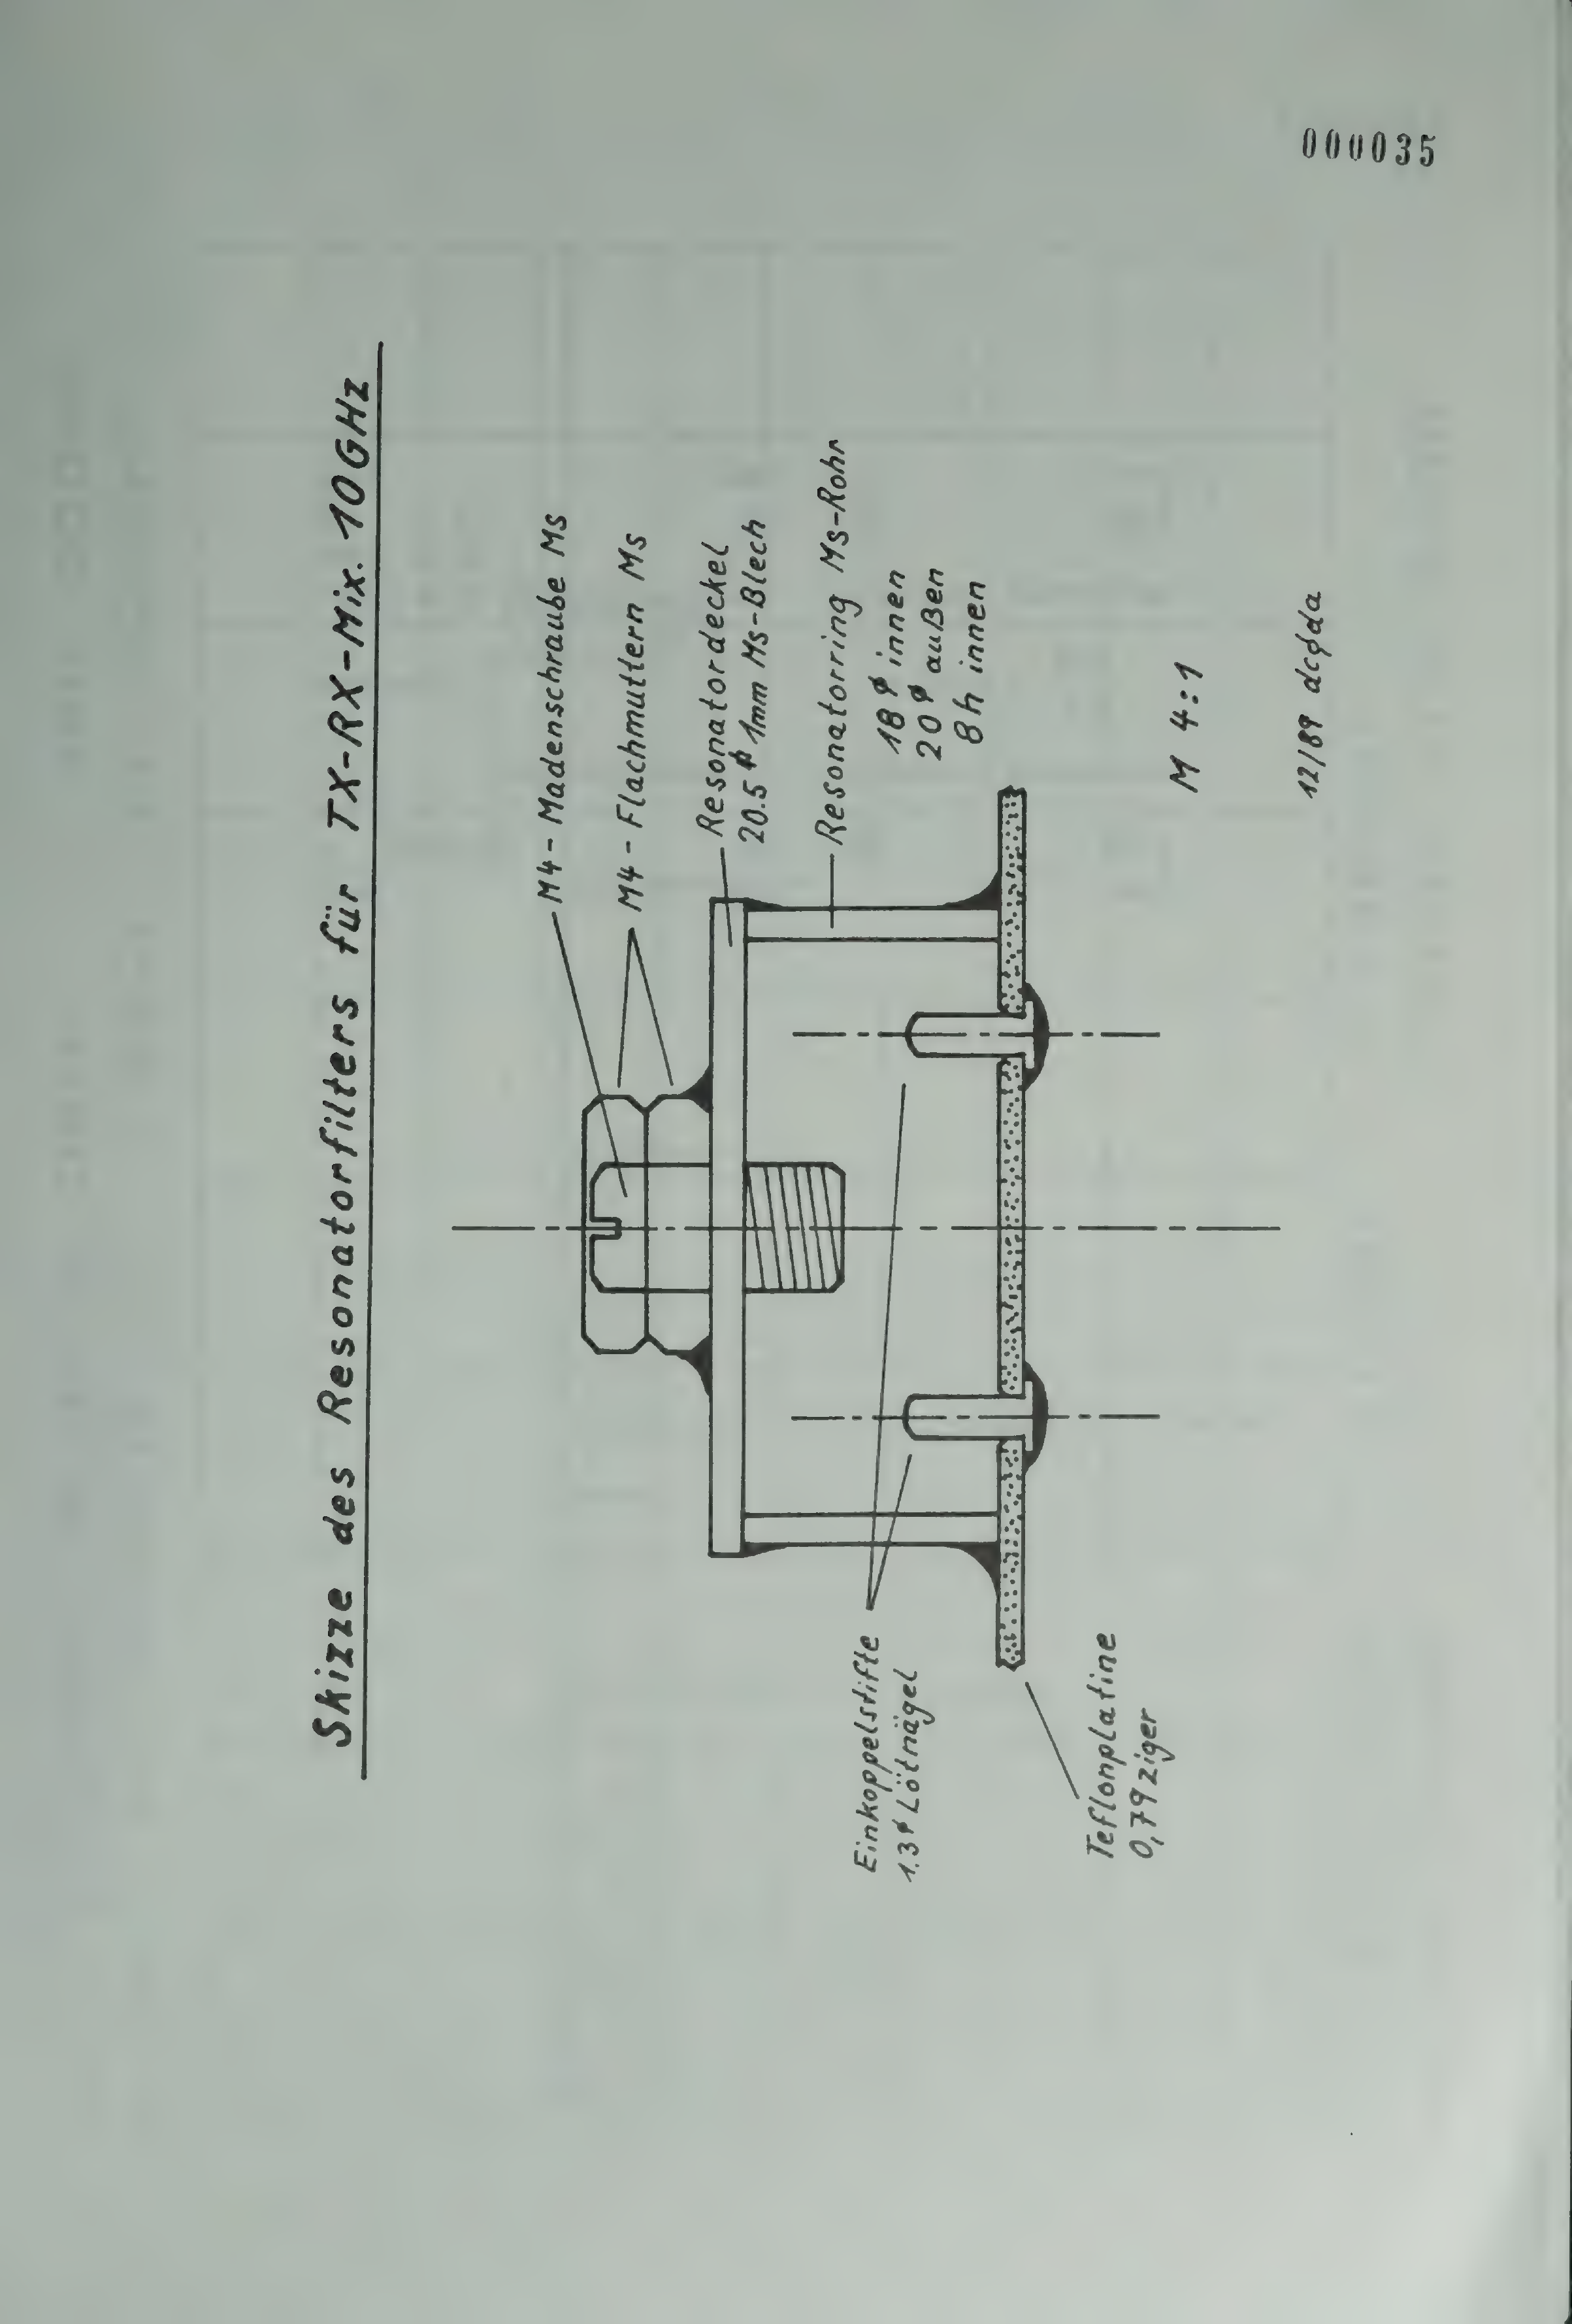 Skizze des Resonatorfilters für TX-RX-Mix. 10GHz
M4-Madenschraube Ms
M4-Flachmuttern Ms
Resonatordeckel
20.5 ø 1mm Ms-Blech
Resonatorring Ms-Rohr
18 ø innen
20 ø außen
8 h innen
Einkoppelstifte
1.3 ø Lötnägel
Teflonplatine
0,79 ziger
M 4:1
12/89 dcøda
000035